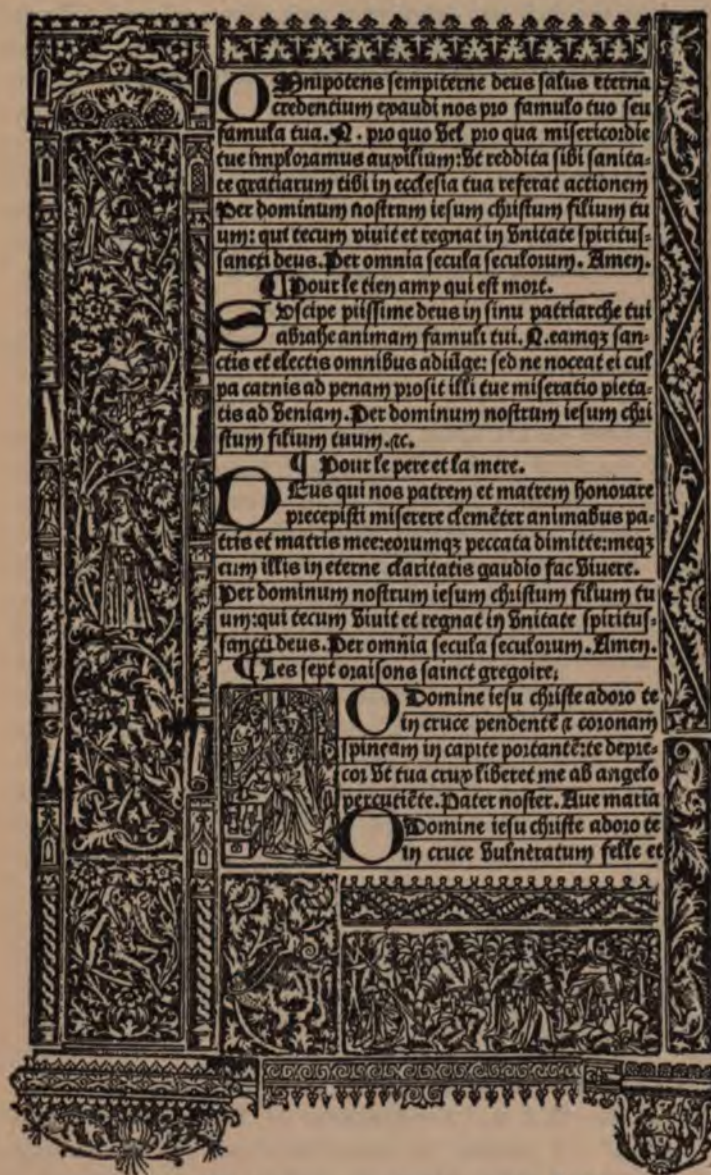 OMnipotens sempiterne deus salus eterna
credentium exaudi nos pro famulo tuo seu
famula tua. N. pro quo vel pro qua misericordie
tue imploramus auxilium: vt reddita sibi sanita-
te gratiarum tibi in ecclesia tua referat actionem
Per dominum nostrum iesum christum filium tu
um: qui tecum viuit et regnat in vnitate spiritus-
sancti deus. Per omnia secula seculorum. Amen.
¶ Pour le tien amy qui est mort.
SVscipe piissime deus in sinu patriarche tui
abrahe animam famuli tui. N. eamqꝫ san-
ctis et electis omnibus adiũge: sed ne noceat ei cul
pa carnis ad penam prosit illi tue miseratio pieta-
tis ad veniam. Per dominum nostrum iesum chri
stum filium tuum. ⁊c.
¶ Pour le pere et la mere.
DEus qui nos patrem et matrem honorare
precepisti miserere clemẽter animabus pa-
tris et matris mee: eorumqꝫ peccata dimitte: meqꝫ
cum illis in eterne claritatis gaudio fac viuere.
Per dominum nostrum iesum christum filium tu
um: qui tecum viuit et regnat in vnitate spiritus-
sancti deus. Per omnia secula seculorum. Amen.
¶ Les sept oraisons sainct gregoire.
O Domine iesu christe adoro te
in cruce pendentẽ ⁊ coronam
spineam in capite portantẽ: te depre-
cor vt tua crux liberet me ab angelo
percutiẽte. Pater noster. Aue maria
O Domine iesu christe adoro te
in cruce vulneratum felle et